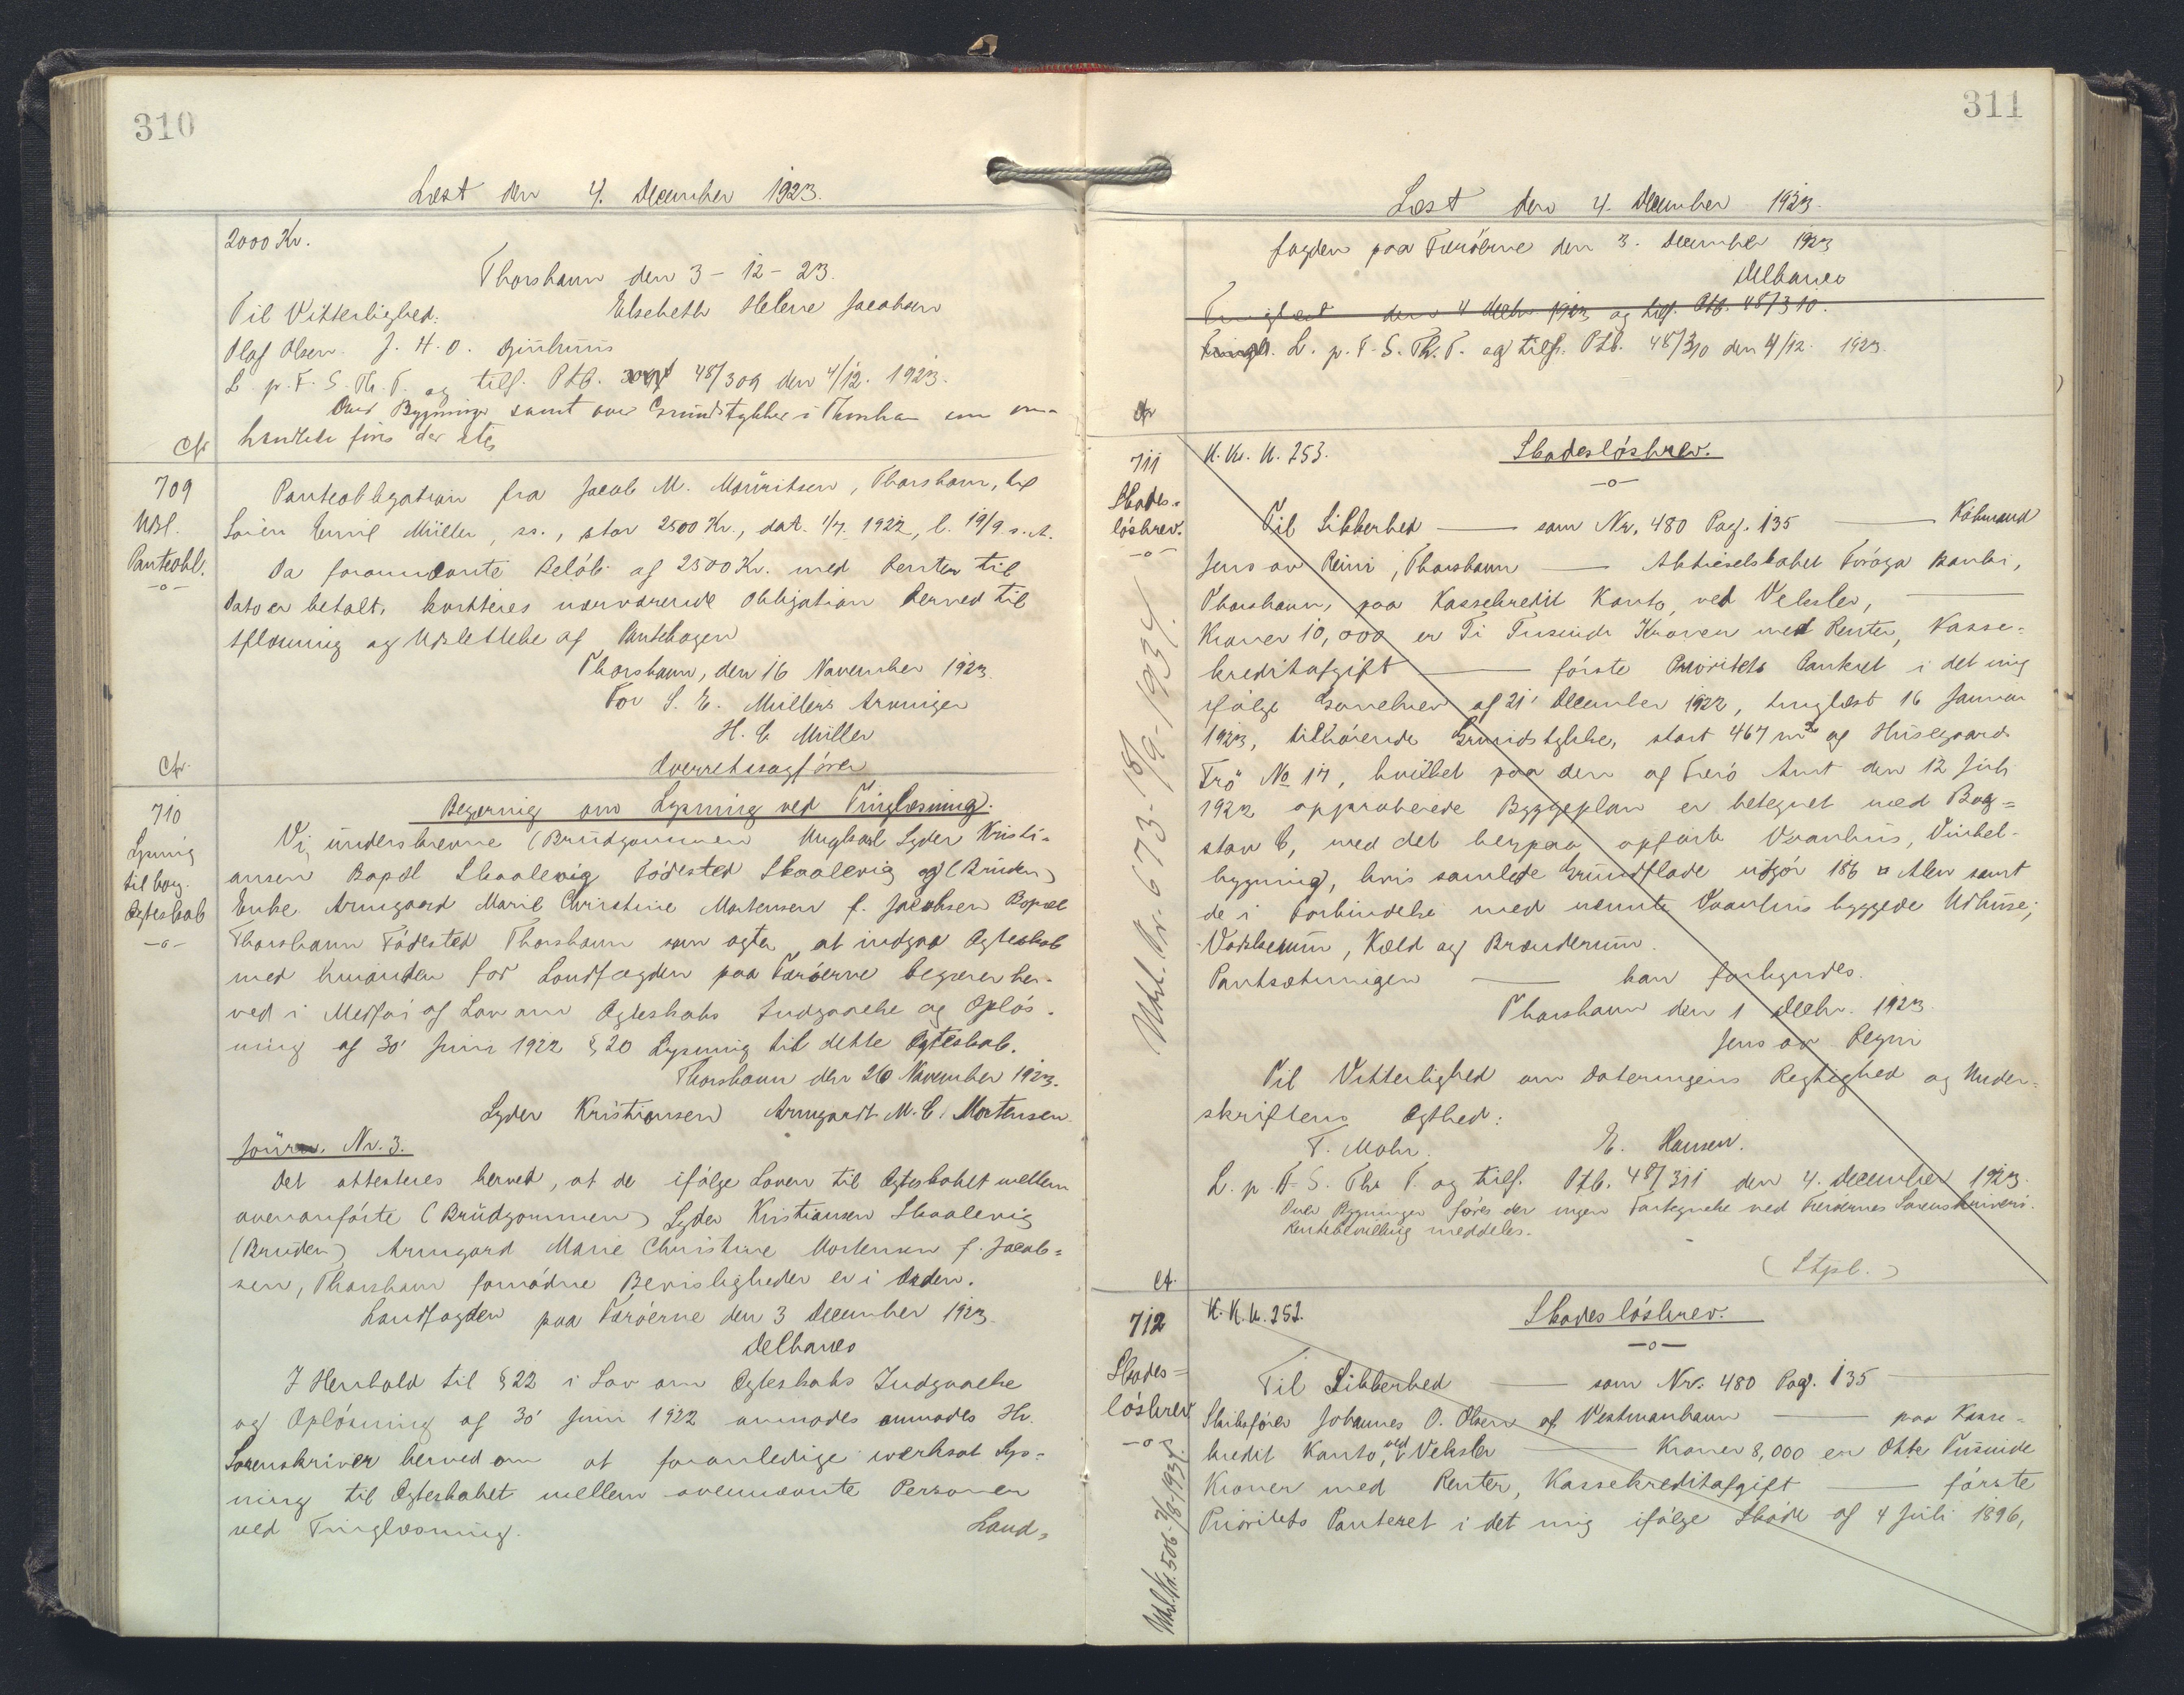 310
Læst den 4. December 1923.
2000 Kr.
Thorshavn den 3-12-23.
Til Vitterlighed: Elsebeth Helene Jacobsen
Olaf Olsen. J. H. O.
L. p. F. S. Th. T. og tilf. Ptb. 48/309 den 4/12. 1923.
Over Bygninger samt over Grundstykker i Thorshavn om
handlede føres der
Cfr
709
Udsl.
Panteobl.
-o-
Panteobligation fra Jacob M. Mouritsen, Thorshavn, til
Sören Emil Müller, ss., stor 2500 Kr., dat. 1/7. 1922, l. 19/9. s. A.
Da forannævnte Beløb af 2500 Kr. med Renter til
Dato er betalt, kvitteres nærværende Obligation herved til
Aflæsning og Udslettelse af Pantebogen
Thorshavn, den 16 November 1923.
For S. E. Müllers Arvinger
H. C. Müller
Overretssagfører
Cfr.
710
Lysning
til borg.
Ægteskab
-o-
Begæring om Lysning ved Tinglæsning.
Vi, underskrevne (Brudgommen) Ungkarl Lyder Kristi-
ansen Bopæl Skaalevig Fødested Skaalevig og (Bruden)
Enke Armgaard Marie Christine Mortensen f. Jacobsen Bopæl
Thorshavn Fødested Thorshavn som agter at indgaa Ægteskab
med hinanden for Landfogden paa Færøerne begærer her-
ved i Medfør af Lov om Ægteskabs Indgaaelse og Opløs-
ning af 30' Juni 1922 § 20 Lysning til dette Ægteskab.
Thorshavn den 26 November 1923.
Lyder Kristiansen Armgardt M. C. Mortensen
Journ. Nr. 3.
Det attesteres herved, at de ifølge Loven til Ægteskabet mellem
ovenanførte (Brudgommen) Lyder Kristiansen Skaalevig
(Bruden) Armgard Marie Christine Mortensen f. Jacob=
sen, Thorshavn fornødne Bevisligheder er i Orden.
Landfogden paa Færøerne den 3 December 1923.
Delbanco
I Henhold til § 22 i Lov om Ægteskabs Indgaaelse
og Opløsning af 30' Juni 1922 anmodes anmodes Hr.
Sorenskriver herved om at foranledige iværksat Lys=
ning til Ægteskabet mellem ovennævnte Personer
ved Tinglæsning. Land=
311
Læst den 4. December 1923.
fogden paa Færøerne den 3. December 1923
Delbanco
Tinglæst den 4 Decbr 1923 og tilf. Ptb. 48/310.
Tingl. L. p. F. S. Th. T. og tilf. Ptb. 48/310 den 4/12. 1923.
Cfr
711
Skades=
løsbrev.
-o-
K. Kr. K. 253. Skadesløsbrev.
-o-
Til Sikkerhed — som Nr. 480 Pag. 135 — Købmand
Jens av Reini, Thorshavn — Aktieselskabet Føroya Banki,
Thorshavn, paa Kassekredit Konto, ved Veksler, —
Kroner 10,000 er Ti Tusinde Kroner med Renter, Kasse=
kreditafgift — første Prioritets Panteret i det mig
ifølge Gavebrev af 21' December 1922, tinglæst 16 Januar
1923, tilhørende Grundstykke, stort 467 m² af Husegaards
Trö No 17, hvilket paa den af Færø Amt den 12 Juli
1922 approberede Byggeplan er betegnet med Bog=
stav C, med det herpaa opførte Vaanhus, Vinkel-
bygning, hvis samlede Grundflade udgør 186 □ Alen samt
de i Forbindelse med nævnte Vaanhus byggede Udhuse;
Vadskerum, Kæld og Brænderum.
Pantsætningen — kan forlyndes.
Thorshavn den 1 Decbr. 1923.
Jens av Reyni
Til Vitterlighed om Dateringens Rigtighed og Under-
skriftens Ægthed:
T. Mohr. E. Hansen.
L. p. F. S. Th. T. og tilf. Ptb. 48/311 den 4. December 1923.
Over Bygninger føres der ingen Fortegnelse ved Færøernes Sorenskriveri.
meddeles.
(Stpl.)
Udsl. Nr. 673-18/9-1934.
Cf.
712
Skades=
løsbrev
-o-
K. K. K. 252. Skadesløsbrev.
-o-
Til Sikkerhed — som Nr. 480 Pag. 135 —
Skibsfører Johannes O. Olsen af Vestmanhavn — paa Kasse=
kredit Konto, ved Veksler — Kroner 8,000 er Otte Tusinde
Kroner med Renter, Kassekreditafgift — første
Prioritets Panteret i det mig ifølge Skøde af 4 Juli 1896,
Udsl. Nr. 506-